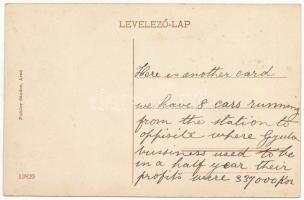 LEVELEZŐ-LAP
Here is another card
we have 8 cars running
from the station to
oppisite where Gyula
bussiness used to be
in a half year their
profits were 337000 Kor
Pichler Sándor, Arad